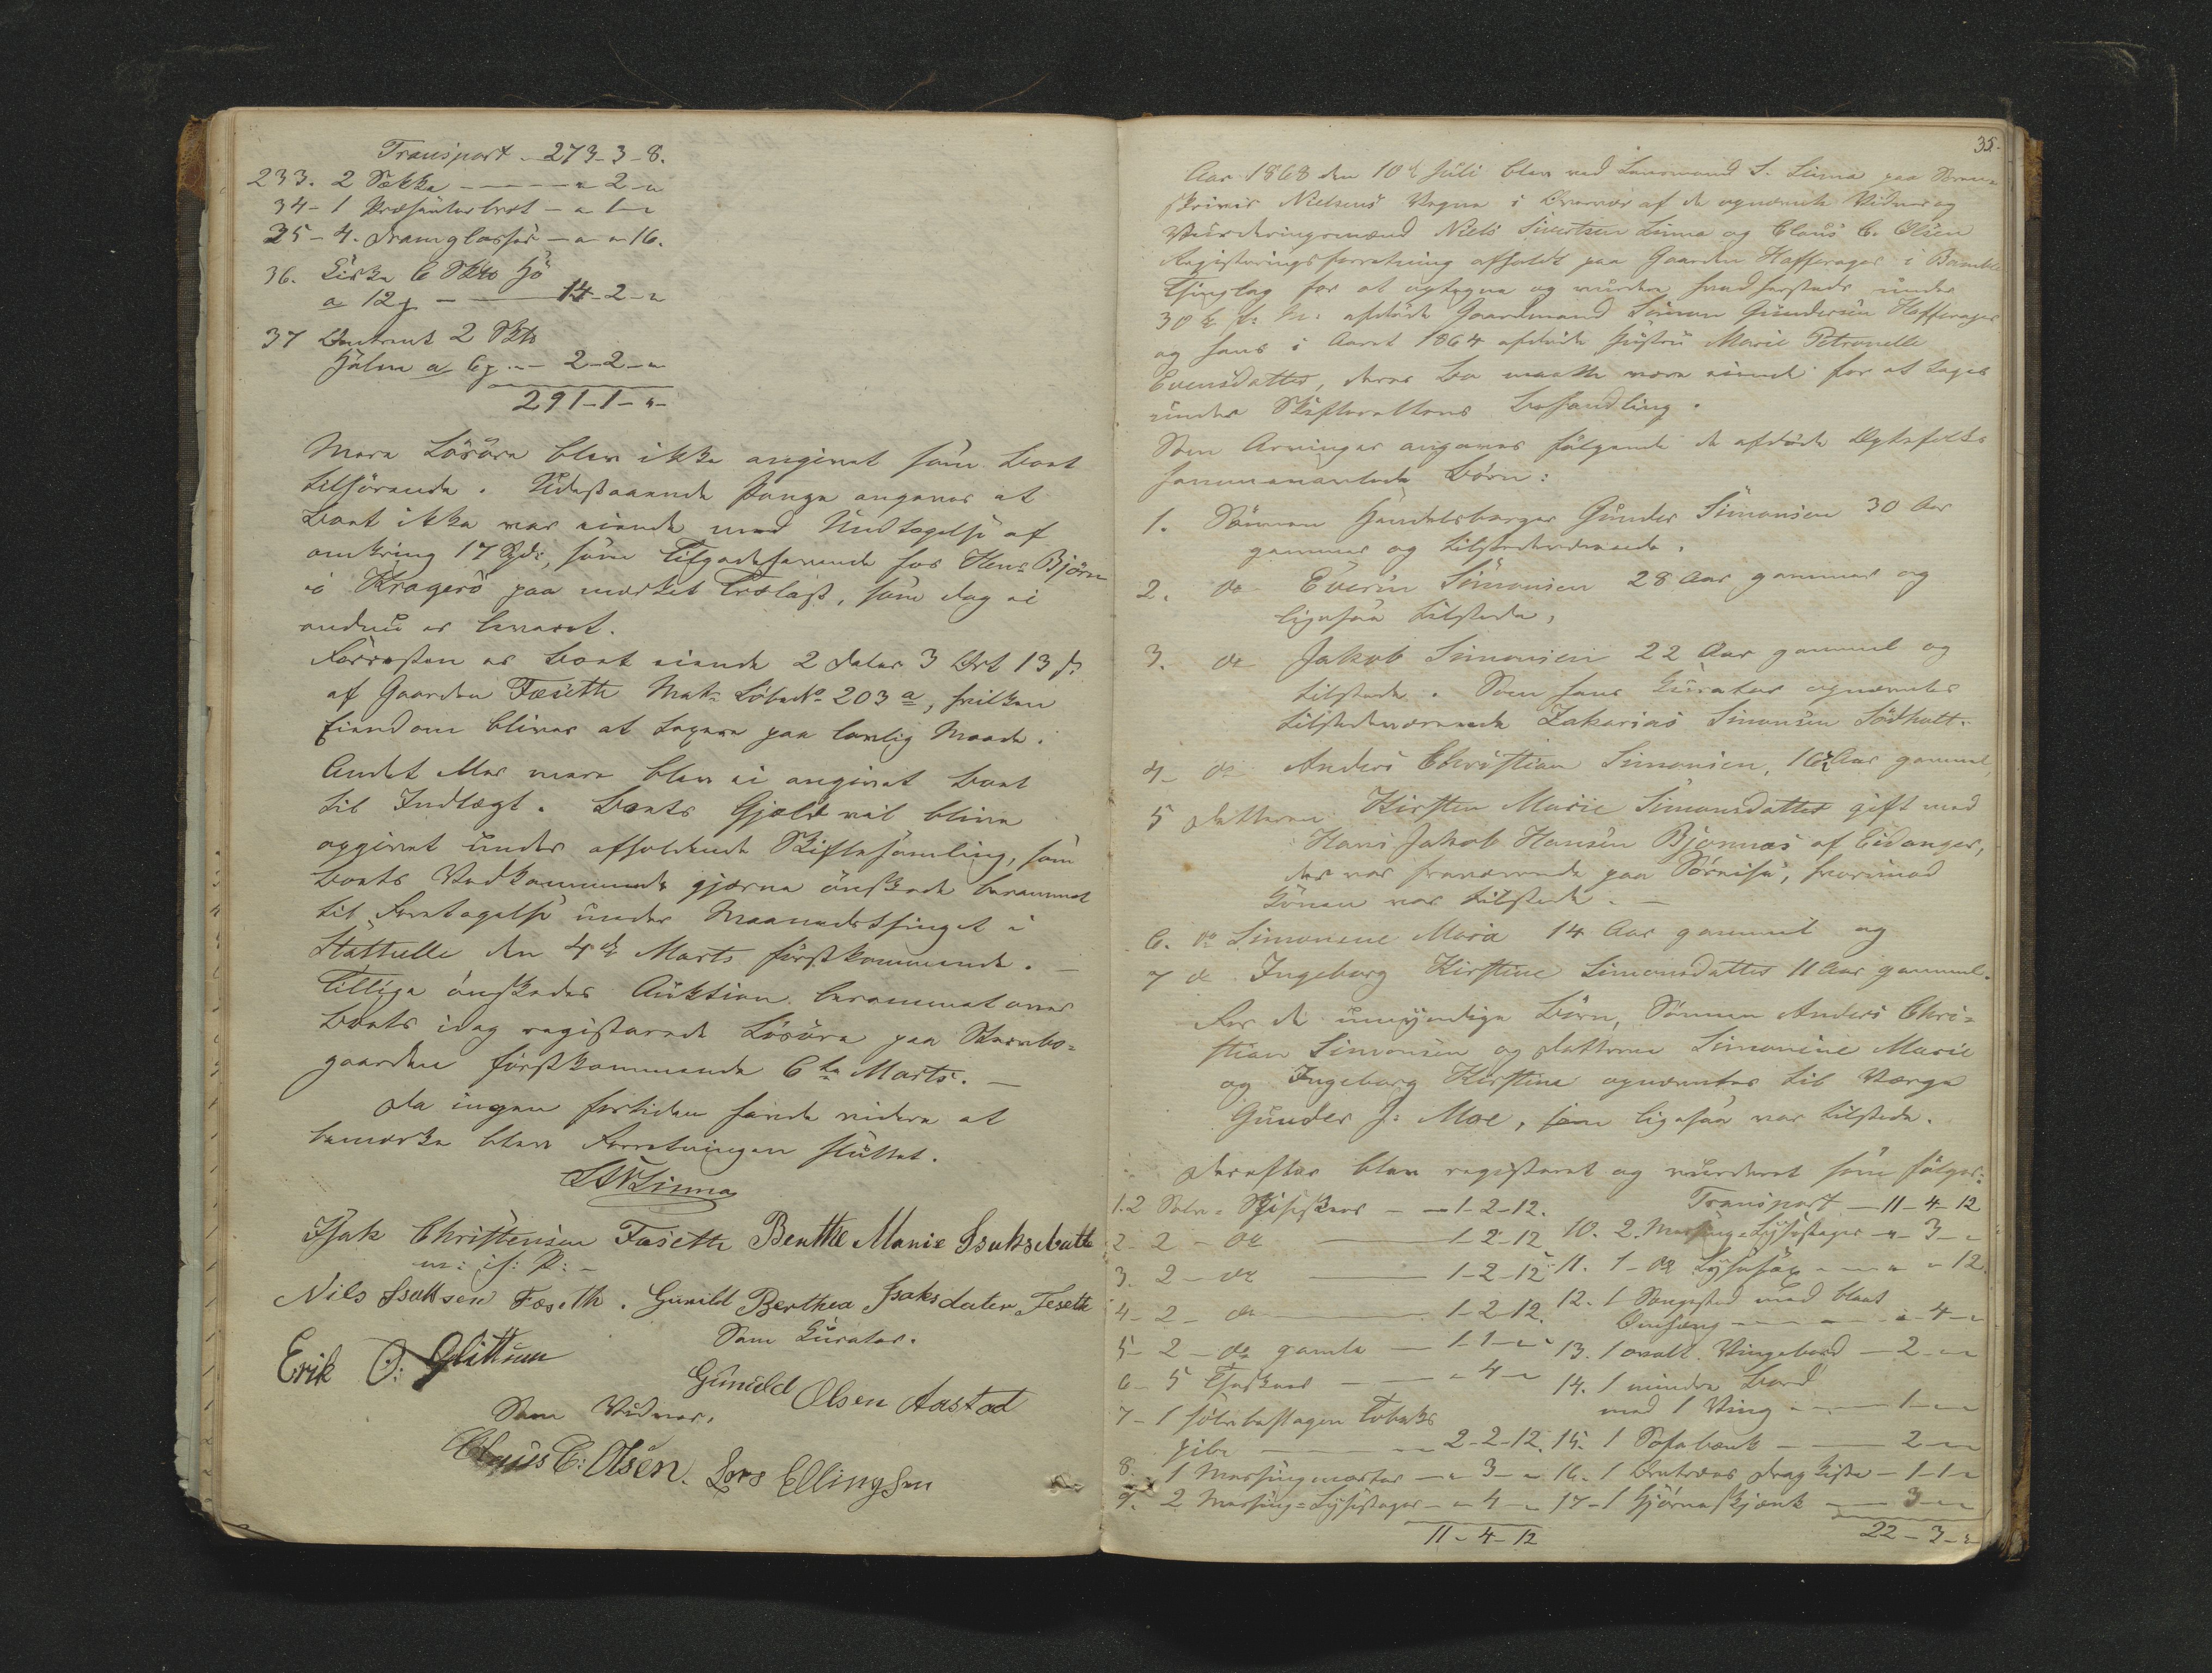 Transport - 273-3-8.
233. 2 Sække - - - - " 2 - "
34 - 1 Præsenterbret - " 1 - "
35 - 4. Dramglasser - " - " 16.
36. Circa 6 Skto Hö
a 12 - 14-2-"
37 Omtrent 2 Skto
Halm a 6 - 2-2-"
291-1-"-
Mere Lösöre blev ikke angivet som Boet
tilhörende. Udestaaende Penge angaves at
Boet ikke var eiende med Undtagelse af
omkring 17 Spd:, som Tilgodehavende hos Henr Björn
i Kragerö paa mærket Trælast, som dog ei
endnu er leveret.
Forresten er Boet eiende 2 Daler 3 Ort 13 s.
af Gaarden Fæseth Matr Löbe No 203 a, hvilken
Eiendom bliver at taxere paa lovlig Maade.
Andet eller mere blev ei angivet Boet
til Indtægt. Boets Gjæld vil blive
opgivet under afholdende Skiftesamling, som
Boets Vedkommende gjerne önskede berammet
til Foretagelse under Maanedsthinget i
Stathelle den 4de Marts förstkommende. -
Tillige önskedes Auktion berammet over
Boets idag registerede Lösöre paa Stervbo-
gaarden förstkommende 6te Marts. -
Da ingen fortiden havde videre at
bemærke blev Forretningen sluttet.
Linna
Isak Christensen Fæseth Benthe Marie Isaksdatte
m: ih: P: -
Nils Isaksen Fæseth. Gunild Berthea Isaksdater Feseth
Som Kurator.
Erik O: Glittum
Gunuld Olsen Aastad
Som Vidner,
Claus C: Olsen. Lars Ellingsen
35.
Aar 1868 den 10de Juli blev ved Lensmand S. Linna paa
Nielsens Vegne i Overvær af de opnævnte Vidner og
Vurderingsmænd Niels Sivertsen Linna og Claus C. Olsen
Registeringsforretning afholdt paa Gaarden Hafsrager i Bamble
Thinglag for at optegne og vurdere hvad herstede under
30te f: M: afdöde Gaardmand Simon Gundersen Hafsrager
og hans i Aaret 1864 afdöde Hustru Marie Petronelle
Evensdatter, deres Bo maatte være eiende for at tages
under Skifterettens Behandling.
Som Arvinger angaves fölgende de afdöde Egtefolks
sammenavlede Börn:
1. Sönnen Handelsborger Gunder Simonsen 30 Aar
gammel og tilstedeværende.
2. do Everin Simonsen 28 Aar gammel og
ligesaa tilstede,
3. do Jakob Simonsen 22 Aar gammel og
tilstede. Som hans Kurator opnævntes
tilstedeværende Zakarias Simonsen Södholt.
4 - do Anders Christian Simonsen, 16 1/2 Aar gammel,
5 Datteren Kirsten Marie Simonsdatter gift med
Hans Jakob Hansen Bjønnæs af Eidanger,
der var fraværende paa Söreise, hvorimod
Konen var tilstede. -
6. do Simonene Maria 14 Aar gammel og
7 do Ingeborg Kirstine Simonsdatter 11 Aar gammel.
For de umyndige Börn, Sönnen Anders Chri-
stian Simonsen og Döttrene Simonine Marie
og Ingeborg Kirstine opnævntes til Værge
Gunder J: Moe, som ligesaa var tilstede.
Derefter blev registeret og vurderet som fölger:
1. 2 Sölv-Spiseskeer - 1-2-12.
2 - 2 - do - 1-2-12
3. 2 - do - 1-2-12
4 - 2 - do - 1-2-12.
5 - 2 - do gamle - 1-1-"
6 - 5 Theskeer - " 4 - "
7 - 1 sölvbeslagen Tobaks
pibe - 2-2-12.
8. 1 Messingmorter - " 3 - "
9. 2 Messing-Lysestager - " 4 - "
11-4-12
Transport - 11-4-12
10. 2. Messing-Lysestager - " - 3 - "
11. 1 - do Lysesax - " - " 12.
12. 1 Sengested med blaat
Omhæng - " - 4 - "
13. 1 ovalt Vingebord - 2 - " - "
14. 1 mindre Bord
med 1 Ving - 1 - " - "
15. 1 Sofabænk - 2 - " - "
16. 1 Dragkiste - 1-1-"
17 - 1 Hjörneskjænk - 3 - " - "
22-3-"